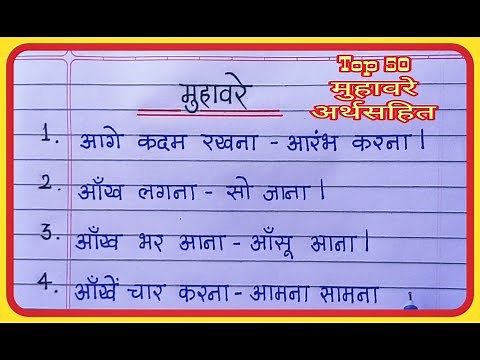 Top 50
मुहावरे
अर्थसहित
मुहावरे
1. आगे कदम रखना - आरंभ करना।
2. आँख लगना - सो जाना।
3. आँख भर आना - आँसू आना।
4. आँखें चार करना - आमना सामना